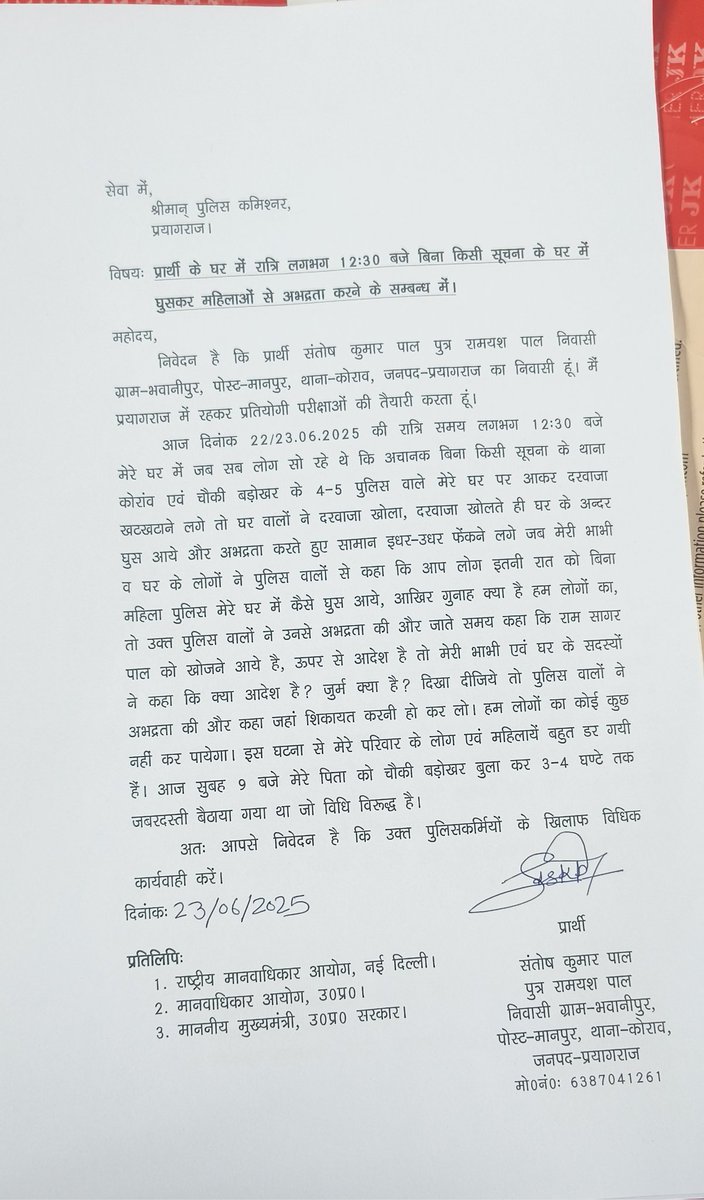 सेवा में,
श्रीमान् पुलिस कमिश्नर,
प्रयागराज।
विषयः प्रार्थी के घर में रात्रि लगभग 12:30 बजे बिना किसी सूचना के घर में
घुसकर महिलाओं से अभद्रता करने के सम्बन्ध में।
महोदय,
निवेदन है कि प्रार्थी संतोष कुमार पाल पुत्र रामयश पाल निवासी
ग्राम-भवानीपुर, पोस्ट-मानपुर, थाना-कोराव, जनपद-प्रयागराज का निवासी हूं। मैं
प्रयागराज में रहकर प्रतियोगी परीक्षाओं की तैयारी करता हूं।
आज दिनांक 22/23.06.2025 की रात्रि समय लगभग 12:30 बजे
मेरे घर में जब सब लोग सो रहे थे कि अचानक बिना किसी सूचना के थाना
कोरांव एवं चौकी बड़ोखर के 4-5 पुलिस वाले मेरे घर पर आकर दरवाजा
खटखटाने लगे तो घर वालों ने दरवाजा खोला, दरवाजा खोलते ही घर के अन्दर
घुस आये और अभद्रता करते हुए सामान इधर-उधर फेंकने लगे जब मेरी भाभी
व घर के लोगों ने पुलिस वालों से कहा कि आप लोग इतनी रात को बिना
महिला पुलिस मेरे घर में कैसे घुस आये, आखिर गुनाह क्या है हम लोगों का,
तो उक्त पुलिस वालों ने उनसे अभद्रता की और जाते समय कहा कि राम सागर
पाल को खोजने आये है, ऊपर से आदेश है तो मेरी भाभी एवं घर के सदस्यों
ने कहा कि क्या आदेश है? जुर्म क्या है? दिखा दीजिये तो पुलिस वालों ने
अभद्रता की और कहा जहां शिकायत करनी हो कर लो। हम लोगों का कोई कुछ
नहीं कर पायेगा। इस घटना से मेरे परिवार के लोग एवं महिलायें बहुत डर गयी
हैं। आज सुबह 9 बजे मेरे पिता को चौकी बड़ोखर बुला कर 3-4 घण्टे तक
जबरदस्ती बैठाया गया था जो विधि विरूद्ध है।
अतः आपसे निवेदन है कि उक्त पुलिसकर्मियों के खिलाफ विधिक
कार्यवाही करें।
दिनांकः 23/06/2025
प्रार्थी
संतोष कुमार पाल
पुत्र रामयश पाल
निवासी ग्राम-भवानीपुर,
पोस्ट-मानपुर, थाना-कोराव,
जनपद-प्रयागराज
मो0नं0: 6387041261
प्रतिलिपिः
1. राष्ट्रीय मानवाधिकार आयोग, नई दिल्ली।
2. मानवाधिकार आयोग, उ0प्र0।
3. माननीय मुख्यमंत्री, उ0प्र0 सरकार।
JK
ER JK
ER JK
other information please refer